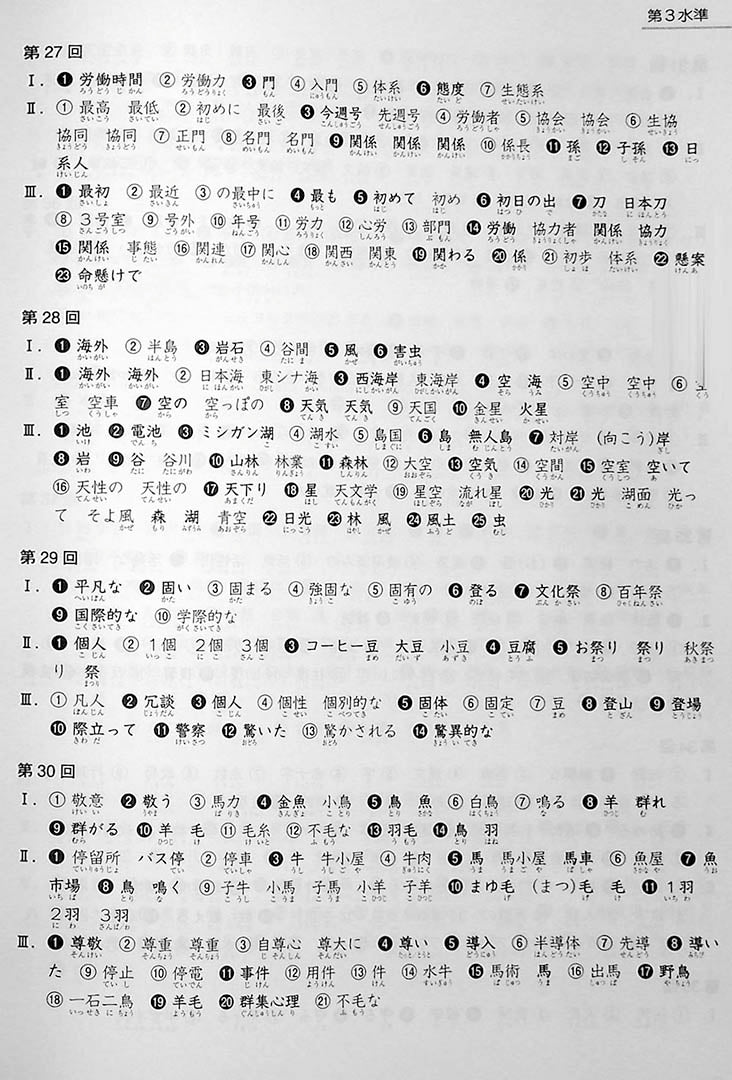 第3水準
第27回
Ⅰ. ❶ 労働時間 ② 労働力 ❸ 門 ④ 入門 ⑤ 体系 ❻ 態度 ⑦ 生態系
Ⅱ. ① 最高 最低 ② 初めに 最後 ❸ 今週号 先週号 ④ 労働者 ⑤ 協会 協会 ⑥ 生協
協同 協同 ⑦ 正門 ⑧ 名門 名門 ❾ 関係 関係 関係 ⑩ 係長 ⓫ 孫 ⓬ 子孫 ⓭ 日
系人
Ⅲ. ① 最初 ② 最近 ③ の最中に ❹ 最も ❺ 初めて 初め ❻ 初日の出 ❼ 刀 日本刀
⑧ 3号室 ⑨ 号外 ⑩ 年号 ⑪ 労力 ⑫ 心労 ⑬ 部門 ⓮ 労働 協力者 関係 協力
⓯ 関係 事態 ⑯ 関連 ⑰ 関心 ⑱ 関西 関東 ⓳ 関わる ⓴ 係 ㉑ 初歩 体系 ㉒ 懸案
㉓ 命懸けで
第28回
Ⅰ. ❶ 海外 ② 半島 ❸ 岩石 ④ 谷間 ❺ 風 ❻ 害虫
Ⅱ. ❶ 海外 海外 ② 日本海 東シナ海 ❸ 西海岸 東海岸 ❹ 空 海 ⑤ 空中 空中 ⑥
室 空車 ❼ 空の 空っぽの ❽ 天気 天気 ⑨ 天国 ❿ 金星 火星
Ⅲ. ❶ 池 ❷ 電池 ❸ ミシガン湖 ④ 湖水 ⑤ 島国 ❻ 島 無人島 ❼ 対岸 (向こう)岸
❽ 岩 ❾ 谷 谷川 ❿ 山林 林業 ⓫ 森林 ⑫ 大空 ⓭ 空気 ⑭ 空間 ⑮ 空室 空いて
⑯ 天性の 天性の ⓱ 天下り ⓲ 星 天文学 ⑲ 星空 流れ星 ⓴ 光 ㉑ 光 湖面 光っ
て そよ風 森 湖 青空 ㉒ 日光 ㉓ 林 風 ㉔ 風土 ㉕ 虫
第29回
Ⅰ. ❶ 平凡な ❷ 固い ③ 固まる ④ 強固な ⑤ 固有の ❻ 登る ❼ 文化祭 ⑧ 百年祭
❾ 国際的な ⑩ 学際的な
Ⅱ. ❶ 個人 ② 1個 2個 3個 ❸ コーヒー豆 大豆 小豆 ❹ 豆腐 ❺ お祭り 祭り 秋祭
り 祭
Ⅲ. ① 凡人 ❷ 冗談 ❸ 個人 ④ 個性 個別的な ❺ 固体 ⑥ 固定 ⑦ 豆 ❽ 登山 ❾ 登場
❿ 際立って ⓫ 警察 ⓬ 驚いた ⑬ 驚かされる ⓮ 驚異的な
第30回
Ⅰ. ① 敬意 ❷ 敬う ③ 馬力 ❹ 金魚 小鳥 ❺ 鳥 魚 ⑥ 白鳥 ⑦ 鳴る ❽ 羊 群れ
❾ 群がる ❿ 羊 毛 ⑪ 毛糸 ⑫ 不毛な ⓭ 羽毛 ⓮ 鳥 羽
Ⅱ. ❶ 停留所 バス停 ② 停車 ❸ 牛 牛小屋 ④ 牛肉 ❺ 馬 馬小屋 馬車 ⑥ 魚屋 ❼ 魚
市場 ❽ 鳥 鳴く ⑨ 子牛 小馬 子馬 小羊 子羊 ❿ まゆ毛 (まつ)毛 毛 ⓫ 1羽
2羽 3羽
Ⅲ. ❶ 尊敬 ② 尊重 尊重 ③ 自尊心 尊大に ❹ 尊い ❺ 導入 ⑥ 半導体 ⑦ 先導 ❽ 導い
た ⑨ 停止 ⑩ 停電 ⓫ 事件 ⑫ 用件 ⑬ 件 ⑭ 水牛 ⑮ 馬術 馬 ⑯ 出馬 ⓱ 野鳥
⑱ 一石二鳥 ⓳ 羊毛 ⓴ 群集心理 ㉑ 不毛な